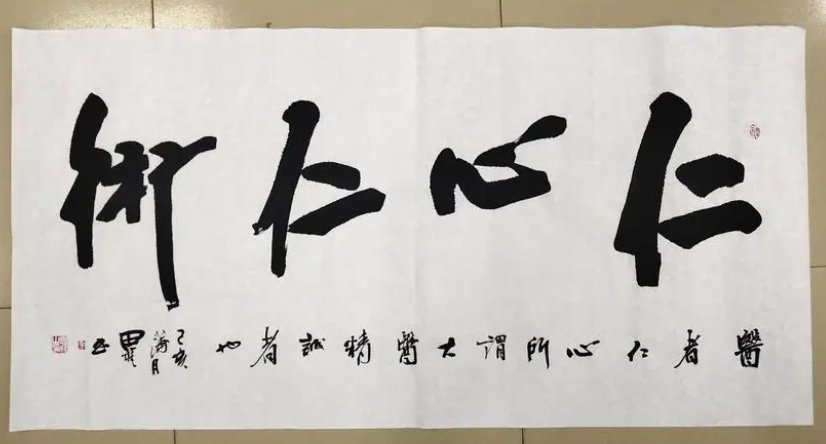 仁心仁術
醫者仁心所謂大醫精誠者也
己亥